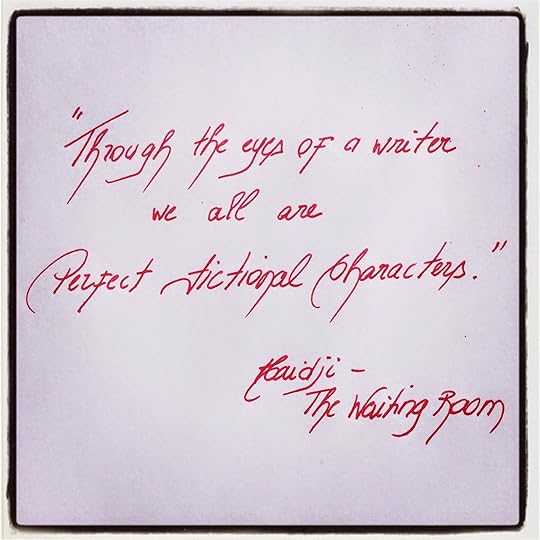 "Through the eyes of a writer
we all are
Perfect fictional Characters."
Haidji -
The Waiting Room